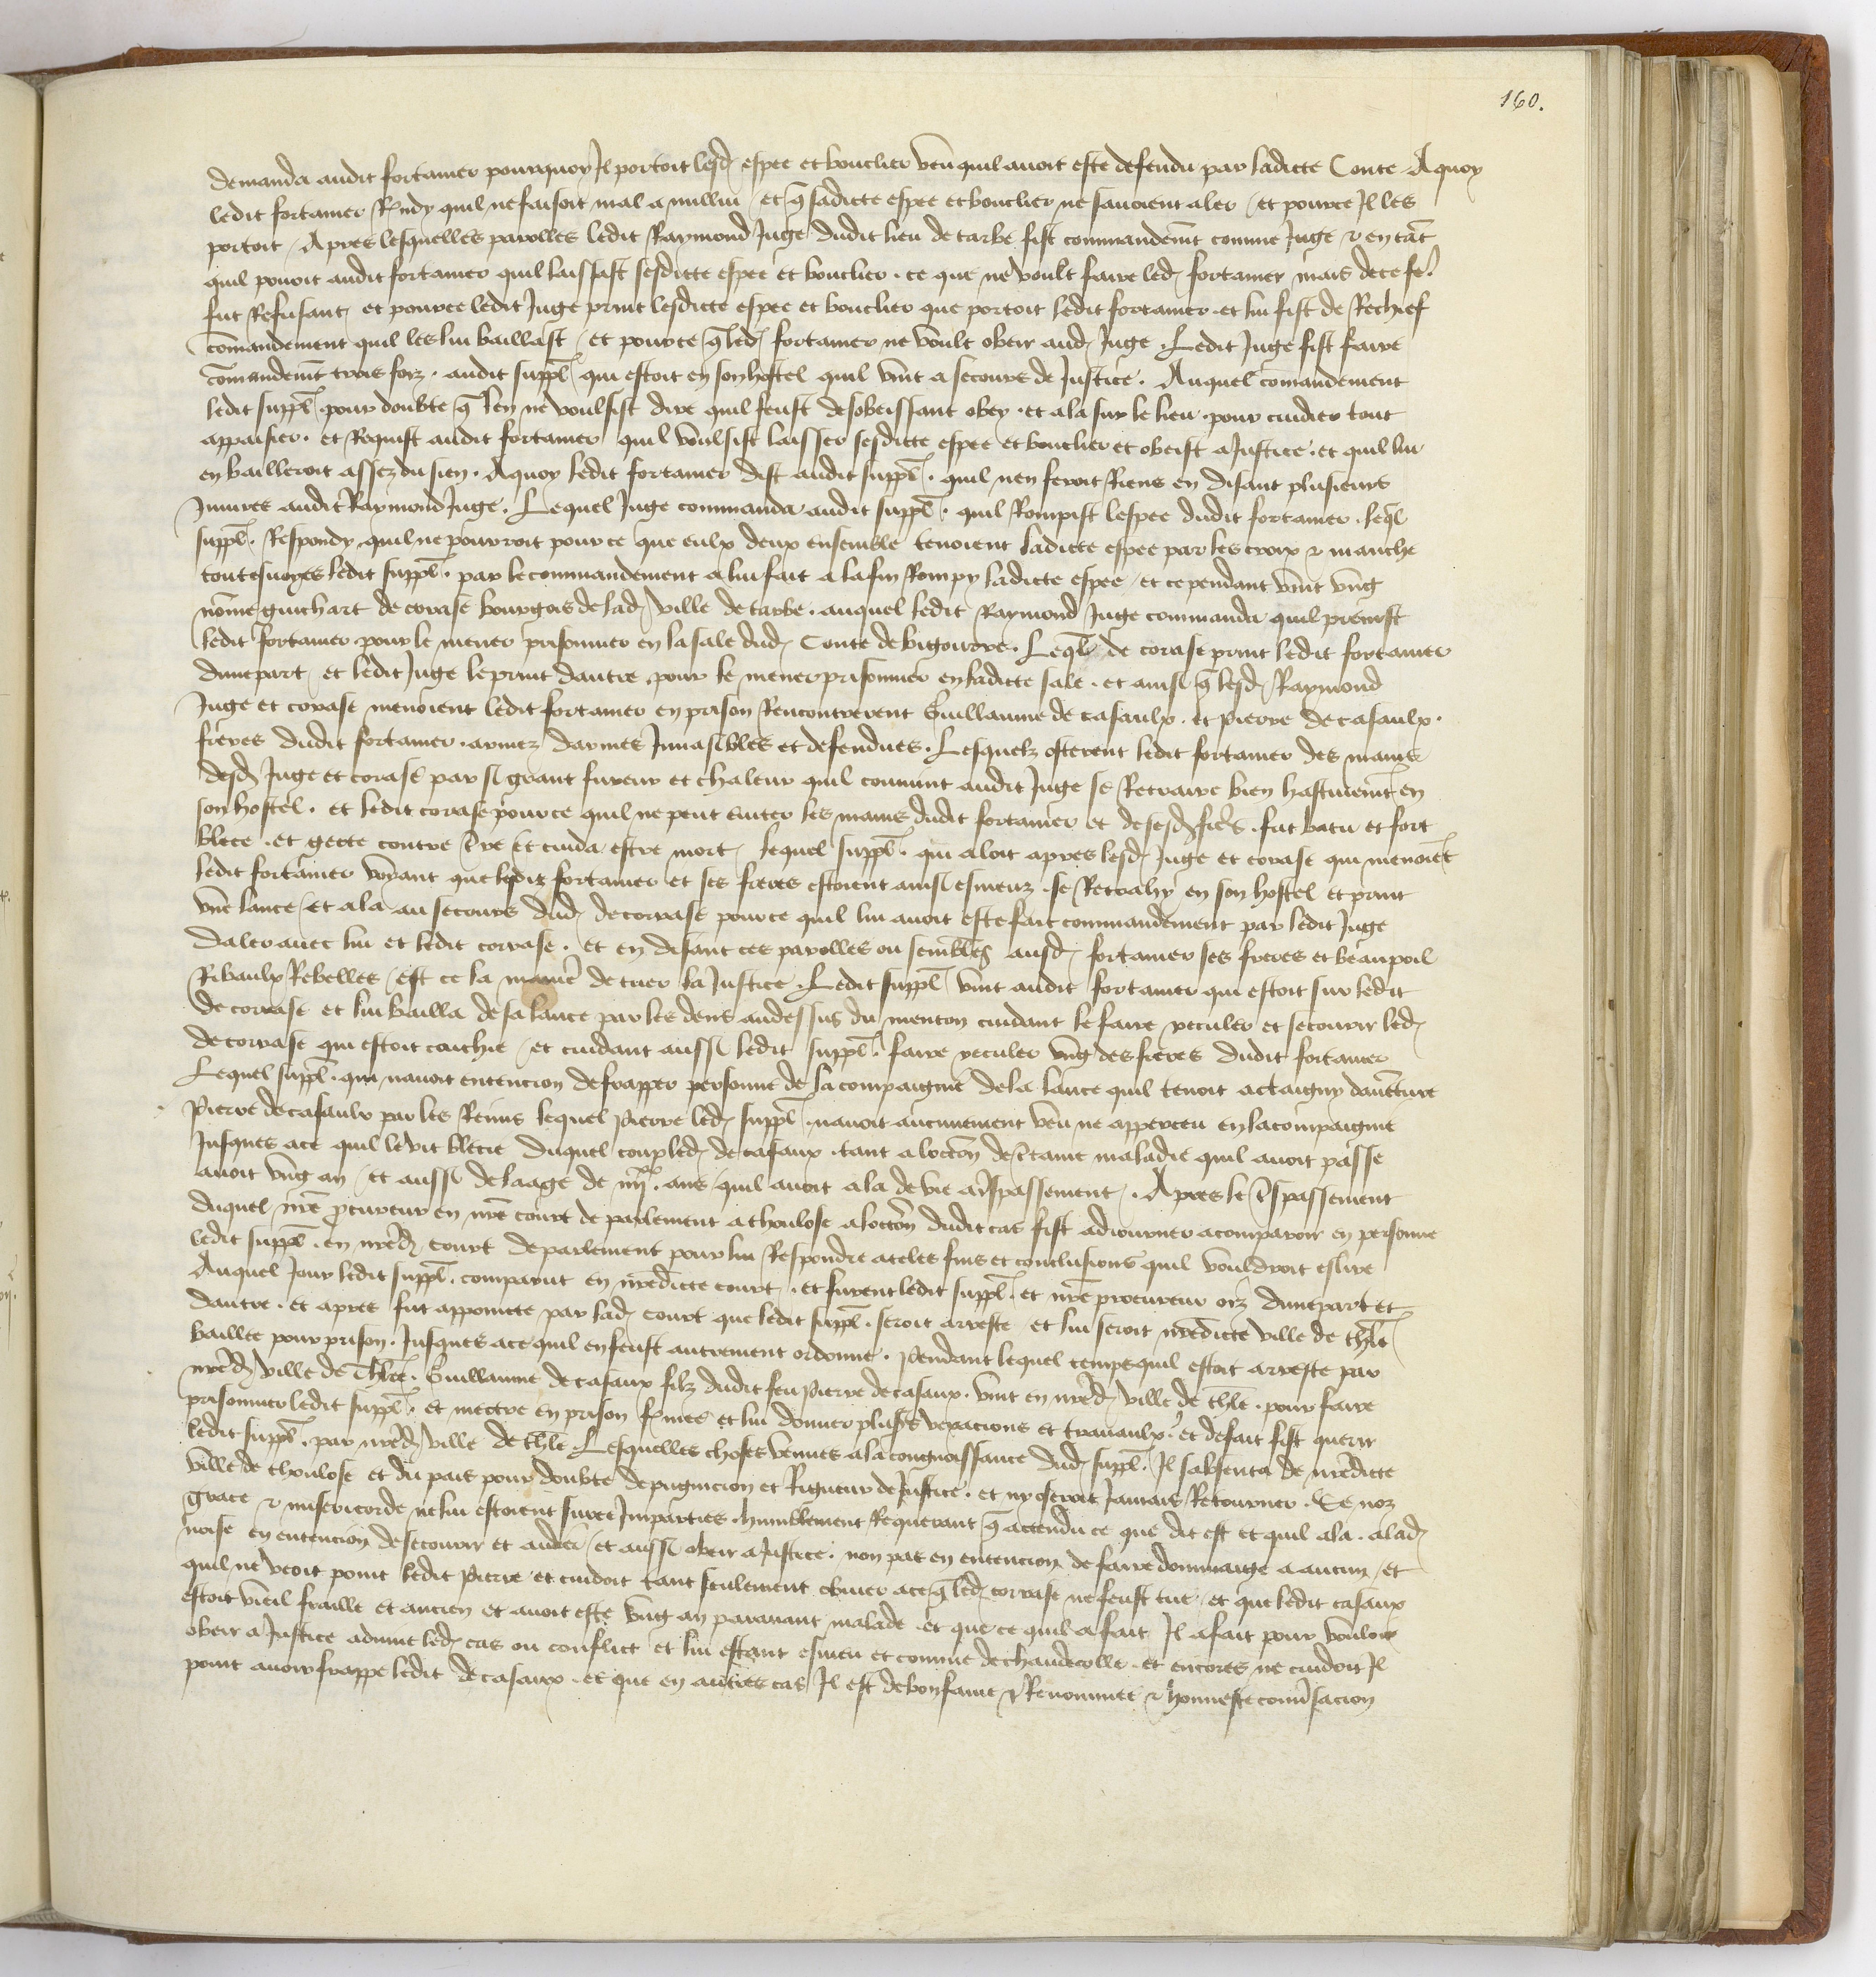 160.
demanda audit fortaner pourquoy Il portoit lesd espee et bouclier veu quil auoit este defendu par ladicte Conte Aquoy
ledit fortaner Rndy quil ne faisoit mal a nulluy et q sadicte espee et bouclier ne sauoient aler et pource Il les
portoit Apres lesquelles parolles ledit Raymond Juge dudit lieu de tarbe fist commandemt comme Juge & en tat
quil pouoit audit fortaner quil laissast sesdicte espee et bouclier . ce que ne voult faire led fortaner mais de ce fe
fut Refusant et pource ledit Juge print lesdicte espee et bouclier que portoit ledit fortaner . et lui fist de Rechief
comandement quil les lui baillast et pource q led fortaner ne voult obeir aud Juge . Ledit Juge fist faire
comandemt trois foiz . audit suppl qui estoit en son hostel quil vint a secours de Justice . Auquel comandement
ledit suppl . pour doubte q len ne voulsist dire quil feust desobeissant obey . et ala sur le lieu . pour cuidier tout
appaisier . et Requist audit fortaner quil voulsist laisser sesdicte espee et bouclier et obeist a Justice . et quil lui
en bailleroit assez du sien . Aquoy ledit fortaner dist audit suppl . quil nen feroit Riens en disant plusieurs
Iniures audit Raymond Juge . Lequel Juge commanda audit suppl . quil Rompist lespee dudit fortaner . leql
suppl . Respondy quil ne pourroit pource que eulx deux ensemble tenoient ladicte espee par les croix & manche
toutesuoyes ledit suppl . par le commandement a lui fait a la fin Rompy ladicte espee et cependant vint vng
nome guichart de corase bourgois de lad ville de tarbe . auquel ledit Raymond Juge commanda quil preinst
ledit fortaner pour le mener prisonnier en la sale dud Conte de bigourre . Leql de corase print ledit fortaner
dunepart et ledit Juge le print dautre pour le mener prisonnier en ladicte sale . et ainsi q lesd Raymond
Juge et corase menoient ledit fortaner en prison Rencontrerent Guillaume de casaulx . et Pierre de casaulx .
freres dudit fortaner . armez darmes Inuasibles et defendues . Lesquelz osterent ledit fortaner des mains
desd Juge et corase par si grant fureur et chaleur quil conuint audit Juge se Retraire bien hastiuemt en
son hostel . et ledit corase pource quil ne peut euiter les mains dudit fortaner et de sesd freres . fut batu et fort
blece . et gecte contre tre et cuida estre mort lequel suppl . qui aloit apres lesd Juge et corase qui menoiet
ledit fortaner voyant que ledit fortaner et ses freres estoient ainsi esmeuz . se Retrahy en son hostel et print
vne lance et ala au secours dud de corrase pource quil lui auoit este fait commandement par ledit Juge
daler auec lui et ledit corrase . et en disant ces parolles ou semblles ausd fortaner ses freres et beaupoil
Ribaulx Rebelles est ce la manie de tuer la Justice . Ledit suppl vint audit fortaner qui estoit sur ledit
de corrase et lui bailla de sa lance par les dens audessus du menton cuidant le faire reculer et secourir led
de corrase qui estoit couchie et cuidant aussi ledit suppl . faire reculer vng des freres dudit fortaner
Lequel suppl . qui nauoit entencion de frapper personne de sa compaignie de la lance quil tenoit actaigny dauenture
Pierre de casaulx par les Reins lequel Pierre led suppl . nauoit aucunement veu ne apperceu en la compaignie
Jusques ace quil le vit blecie duquel coup led de casaux . tant a loccon de ctaine maladie quil auoit passe
auoit vng an et aussi de laage de iiiixx . ans quil auoit ala de vie a trspassement . Apres le trspassement
duquel nre procureur en nre court de parlement a thoulose a loccon dudit cas fist adiourner acomparoir en personne
ledit suppl . en nred court de parlement pour lui Respondre ateles fins et conclusions quil vouldroit eslire
Auquel Jour ledit suppl . comparut en nredicte court . et furent ledit suppl . et nre procureur oiz dunepart et
dautre . et apres fut appoincte par lad court que ledit suppl . seroit arreste et lui seroit nredicte ville de thle
baillee pour prison . Jusques ace quil en feust autrement ordonne . Pendant lequel temps quil estoit arreste par
nred ville de thle . Guillaume de casaux filz dudit feu Pierre de casaux . vint en nred ville de thle . pour faire
prisonnier ledit suppl . et mectre en prison fmee et lui donner pluss vexacions et trauaulx . et defait fist querir
ledit suppl . par nred ville de thle . Lesquelles choses venues a la congnoissance dud suppl . Il sabsenta de nredicte
ville de thoulose et du pais pour doubte de pugnicion et Rigueur de Justice . et ny oseroit Jamais Retourner . Se noz
grace & misericorde ne lui estoient sur ce Imparties . humblement Requerant q actendu ce que dit est et quil ala . alad
noise en entencion de secourir et aider et aussi obeir a Justice . non pas en entencion de faire dommaige a aucun et
quil ne veoit point ledit Pierre et cuidoit tant seulement obuier ace q led corrase ne feust tue et que ledit casaux
estoit vieil fraille et ancien et auoit este vng an parauant malade et que ce quil a fait Il a fait pour vouloir
obeir a Justice aduint led cas ou conflict et lui estant esmeu et comme de chaudecolle . et encores ne cuidoit Il
point auoir frappe ledit de casaux . et que en autres cas Il est de bon fame & Renommee & honneste conusacion